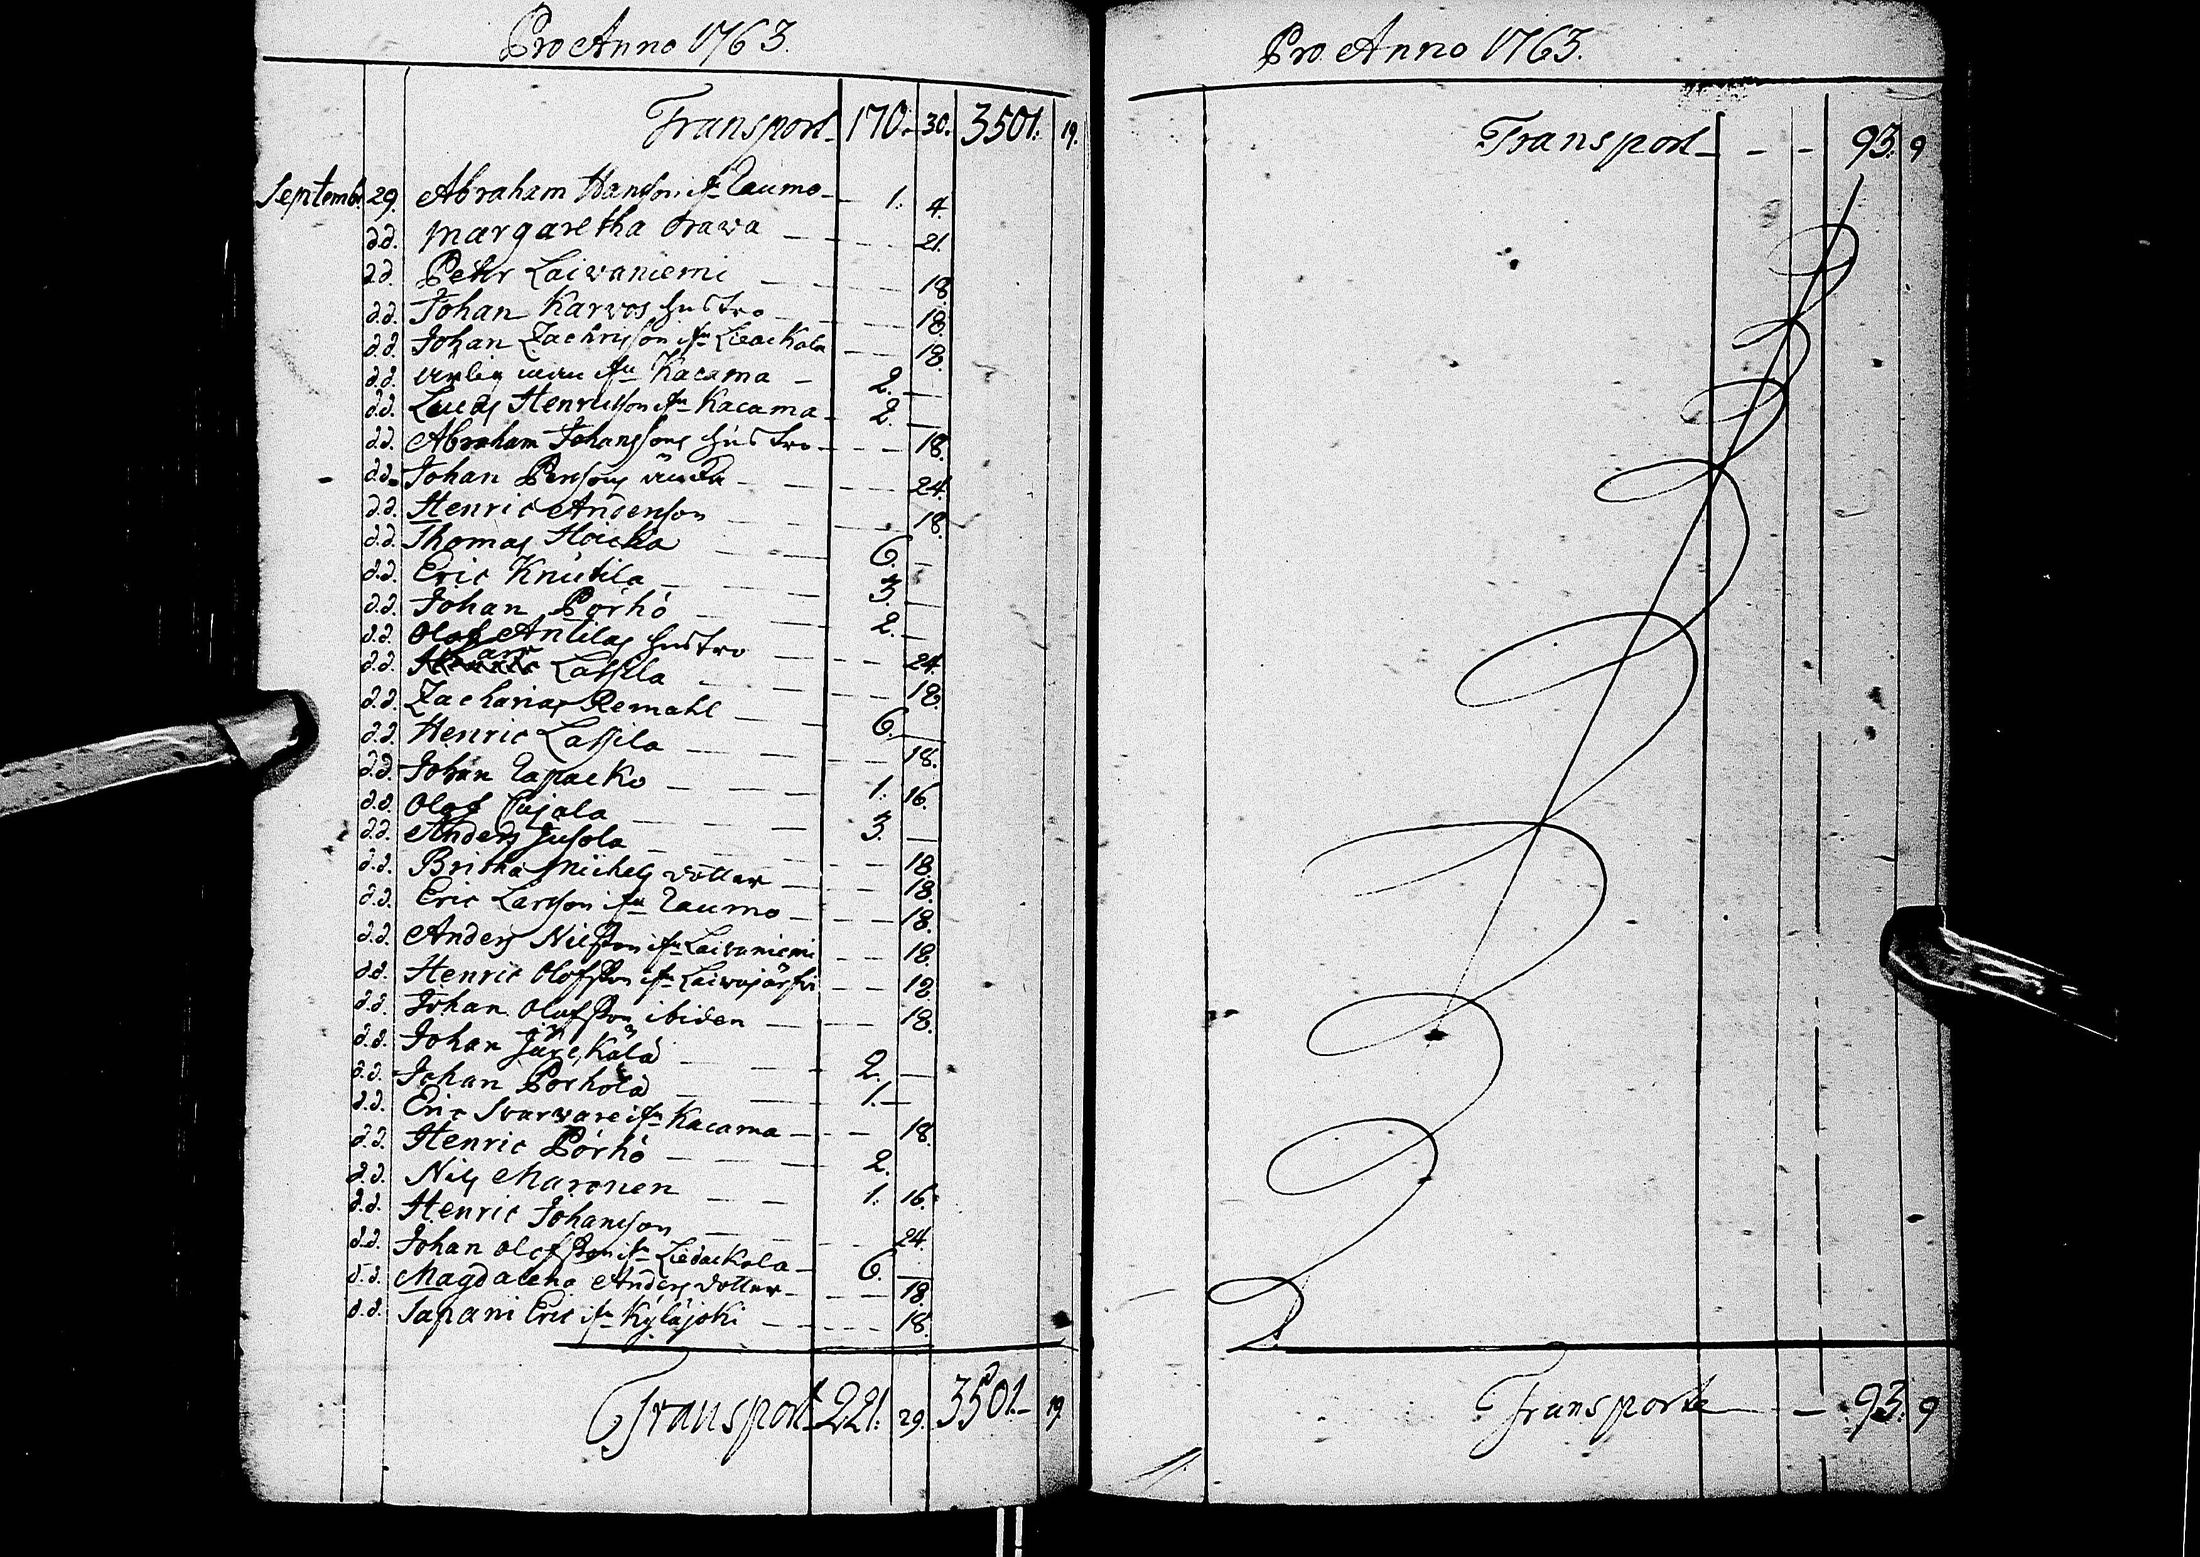 Pro Anno 1763.
Transport 170. 30. 3501. 19.
Septemb. 29. Abraham Hansson ifr. Raumo 1. 4.
d.d. Margaretha Orawa 21.
d.d. Petter Laiwaniemi 18.
d.d. Johan Karwos hustro 18.
d.d. Johan Zachrisson ifn Liedackala 18.
d.d. ifn Kacama 2.
d.d. Lucas Henricsson ifn Kacama 2.
d.d. Abraham Johanssons hustro 18.
d.d. Johan Perssons 24.
d.d. Henric Andersson 18.
d.d. Thomas Hoicka 6.
d.d. Eric Knutila 3.
d.d. Johan Pörhö 2.
d.d. Olof Antilas hustro 24.
d.d. Lassila 18.
d.d. Zacharias Remahl 6.
d.d. Henric Lassila 18.
d.d. Johan 1. 16.
d.d. Olof 3.
d.d. Anders Jusola 18.
d.d. Britha Michels dotter 18.
d.d. Eric Larsson ifn Raumo 18.
d.d. Anders Nilsson ifn Laivaniemi 18.
d.d. Henric Olofsson ifn Laiwajärfvi 12.
d.d. Johan Olofsson ibidem 18.
d.d. Johan 2.
d.d. Johan Pörhölä 1.
d.d. Eric Svarvare ifn Kacama 18.
d.d. Henric Pörhö 2.
d.d. Nils Maronen 1. 16.
d.d. Henric Johansson 24.
d.d. Johan Olofsson ifn Liedackala 6.
d.d. Magdalena Anders dotter 18.
d.d. Tapani Eric ifn Kyläjoki 18.
Transport 221. 29. 3501. 19.
Pro Anno 1763.
Transport 93. 9
Transport 93. 9